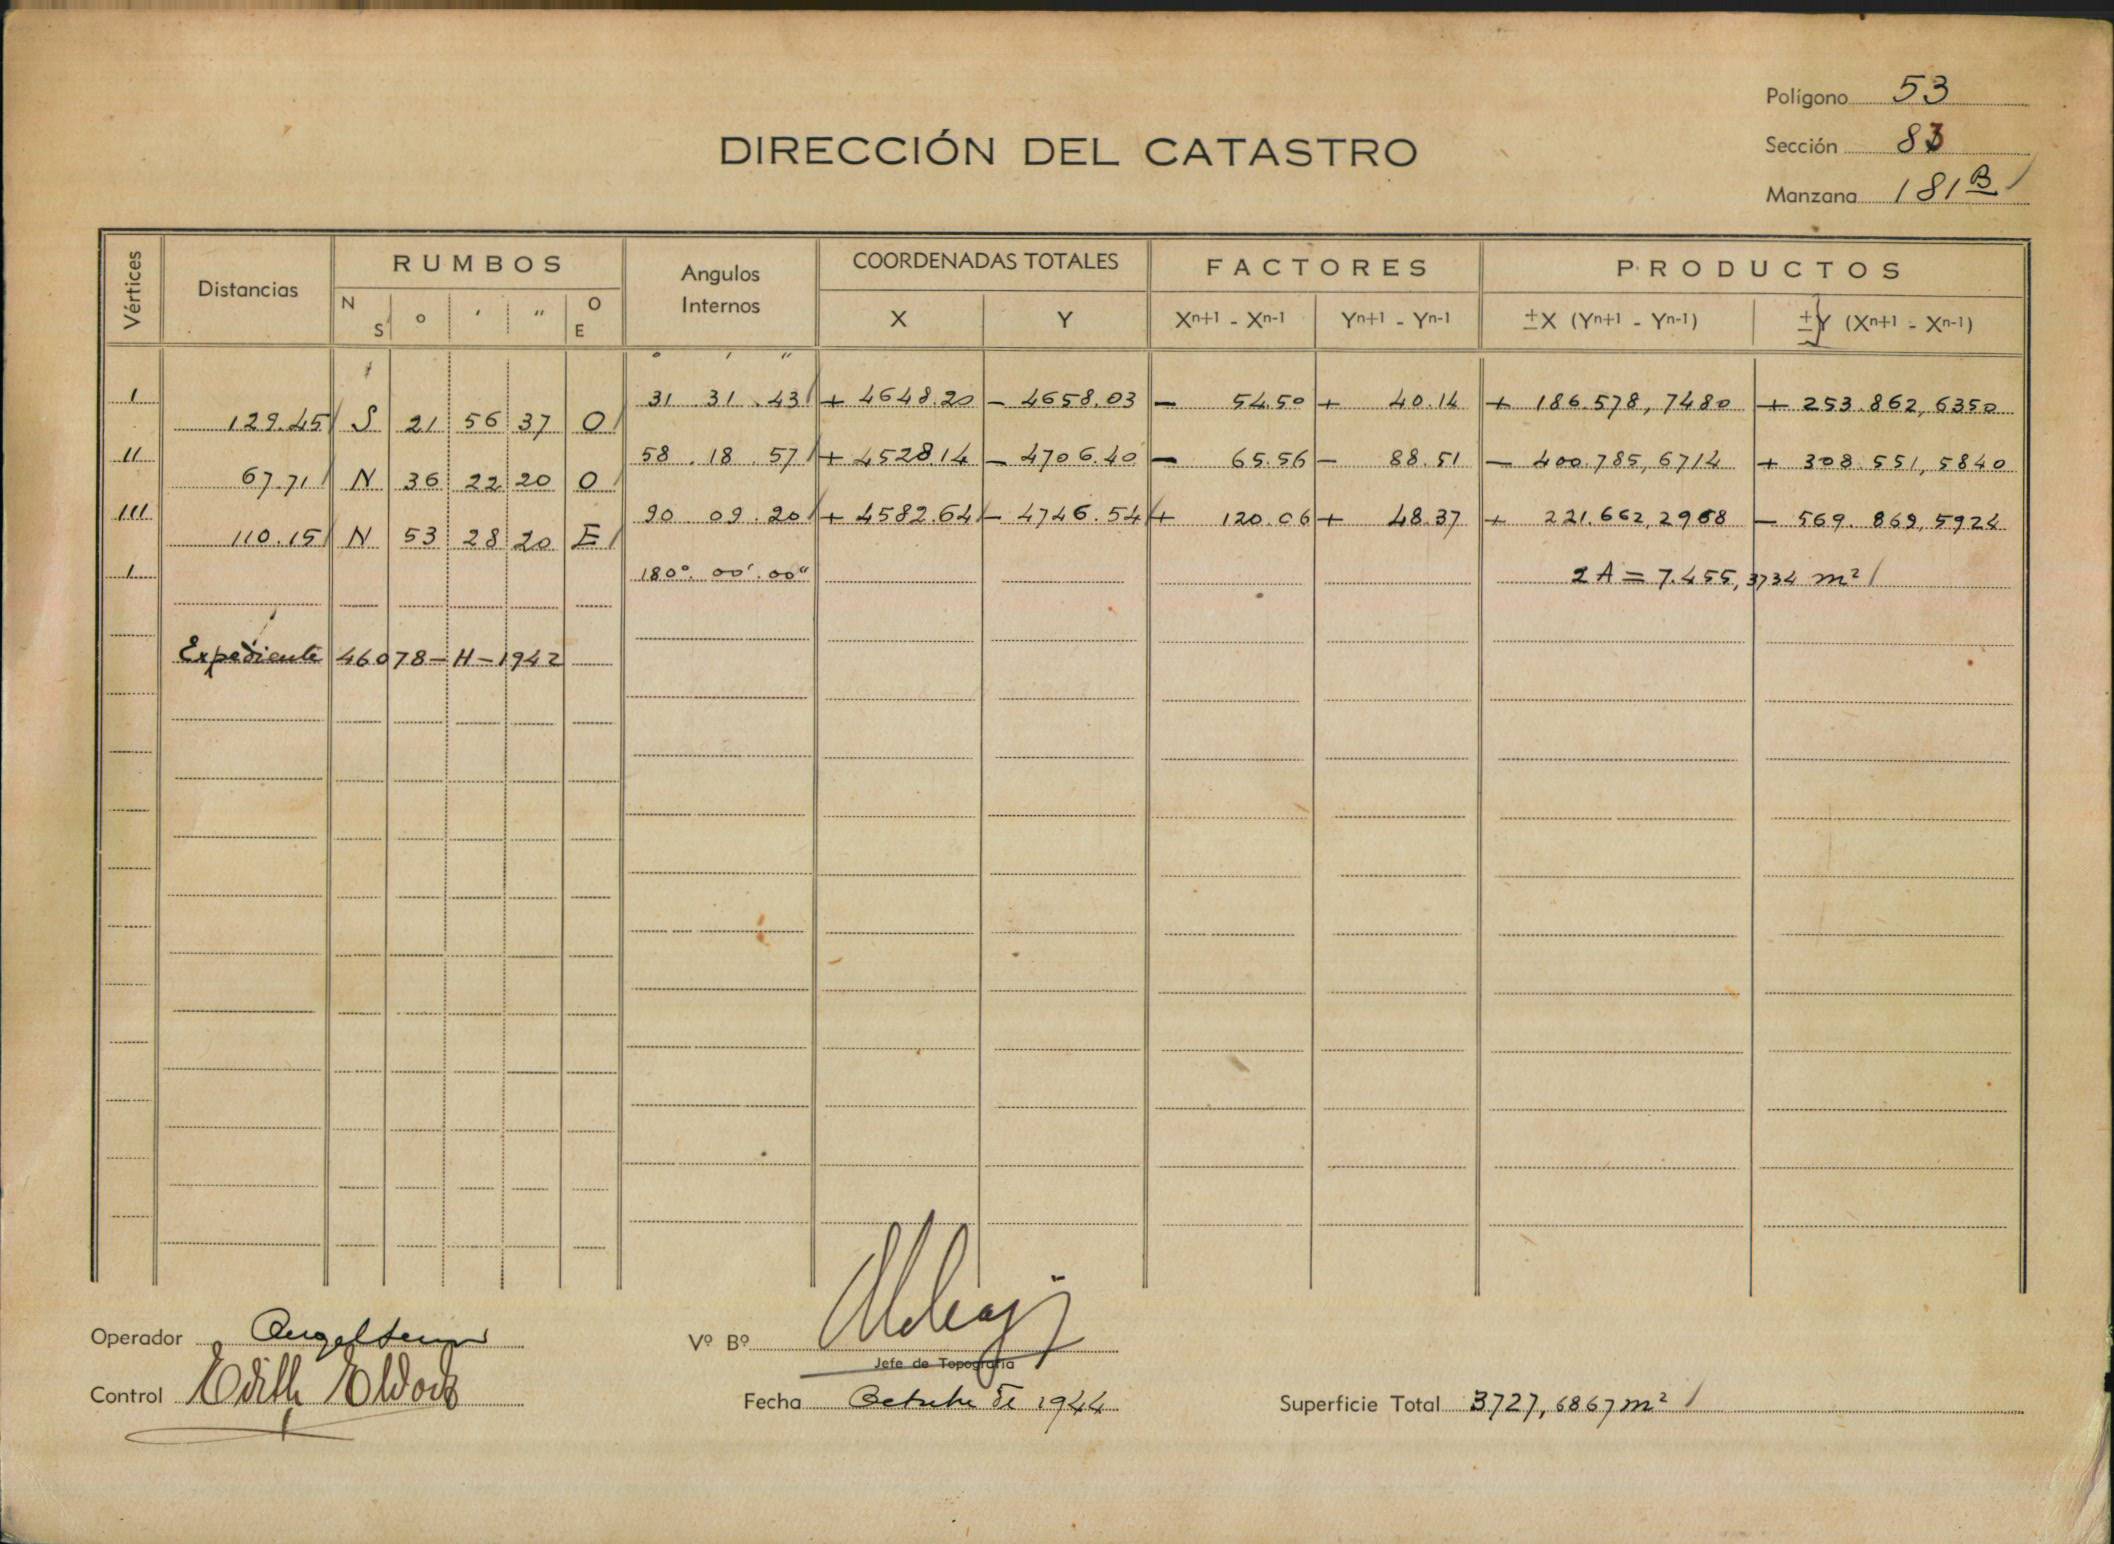 Polígono 53
Sección 83
DIRECCIÓN DEL CATASTRO
Manzana 181 B
Vértices Distancias RUMBOS Angulos Internos COORDENADAS TOTALES FACTORES PRODUCTOS
N S o ' " O E X Y Xn+1 - Xn-1 Yn+1 - Yn-1 ±X (Yn+1 - Yn-1) ±Y (Xn+1 - Xn-1)
o ' "
I 31 31 43 + 4648.20 - 4658.03 - 54.50 + 40.14 + 186.578,7480 + 253.862,6350
129.45 S 21 56 37 O
II 58 18 57 + 4528.14 - 4706.40 - 65.56 - 88.51 - 400.785,6714 + 308.551,5840
67.71 N 36 22 20 O
III 90 09 20 + 4582.64 - 4746.54 + 120.06 + 48.37 + 221.662,2968 - 569.869,5924
110.15 N 53 28 20 E
I 180° 00' 00" 2A = 7.455,3734 m²
Expediente 46078-H-1942
Operador
Vº Bº
Jefe de Topografía
Control Edith
Fecha Octubre de 1944
Superficie Total 3727,6867 m²